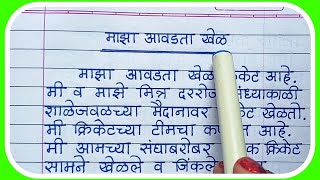 माझा आवडता खेळ
माझा आवडता खेळ आहे.
मी व माझे मित्र दररोज
शाळेजवळच्या मैदानावर खेळतो.
मी क्रिकेटच्या टीमचा आहे.
मी आमच्या संघाबरोबर क्रिकेट
सामने खेळले व जिंकले